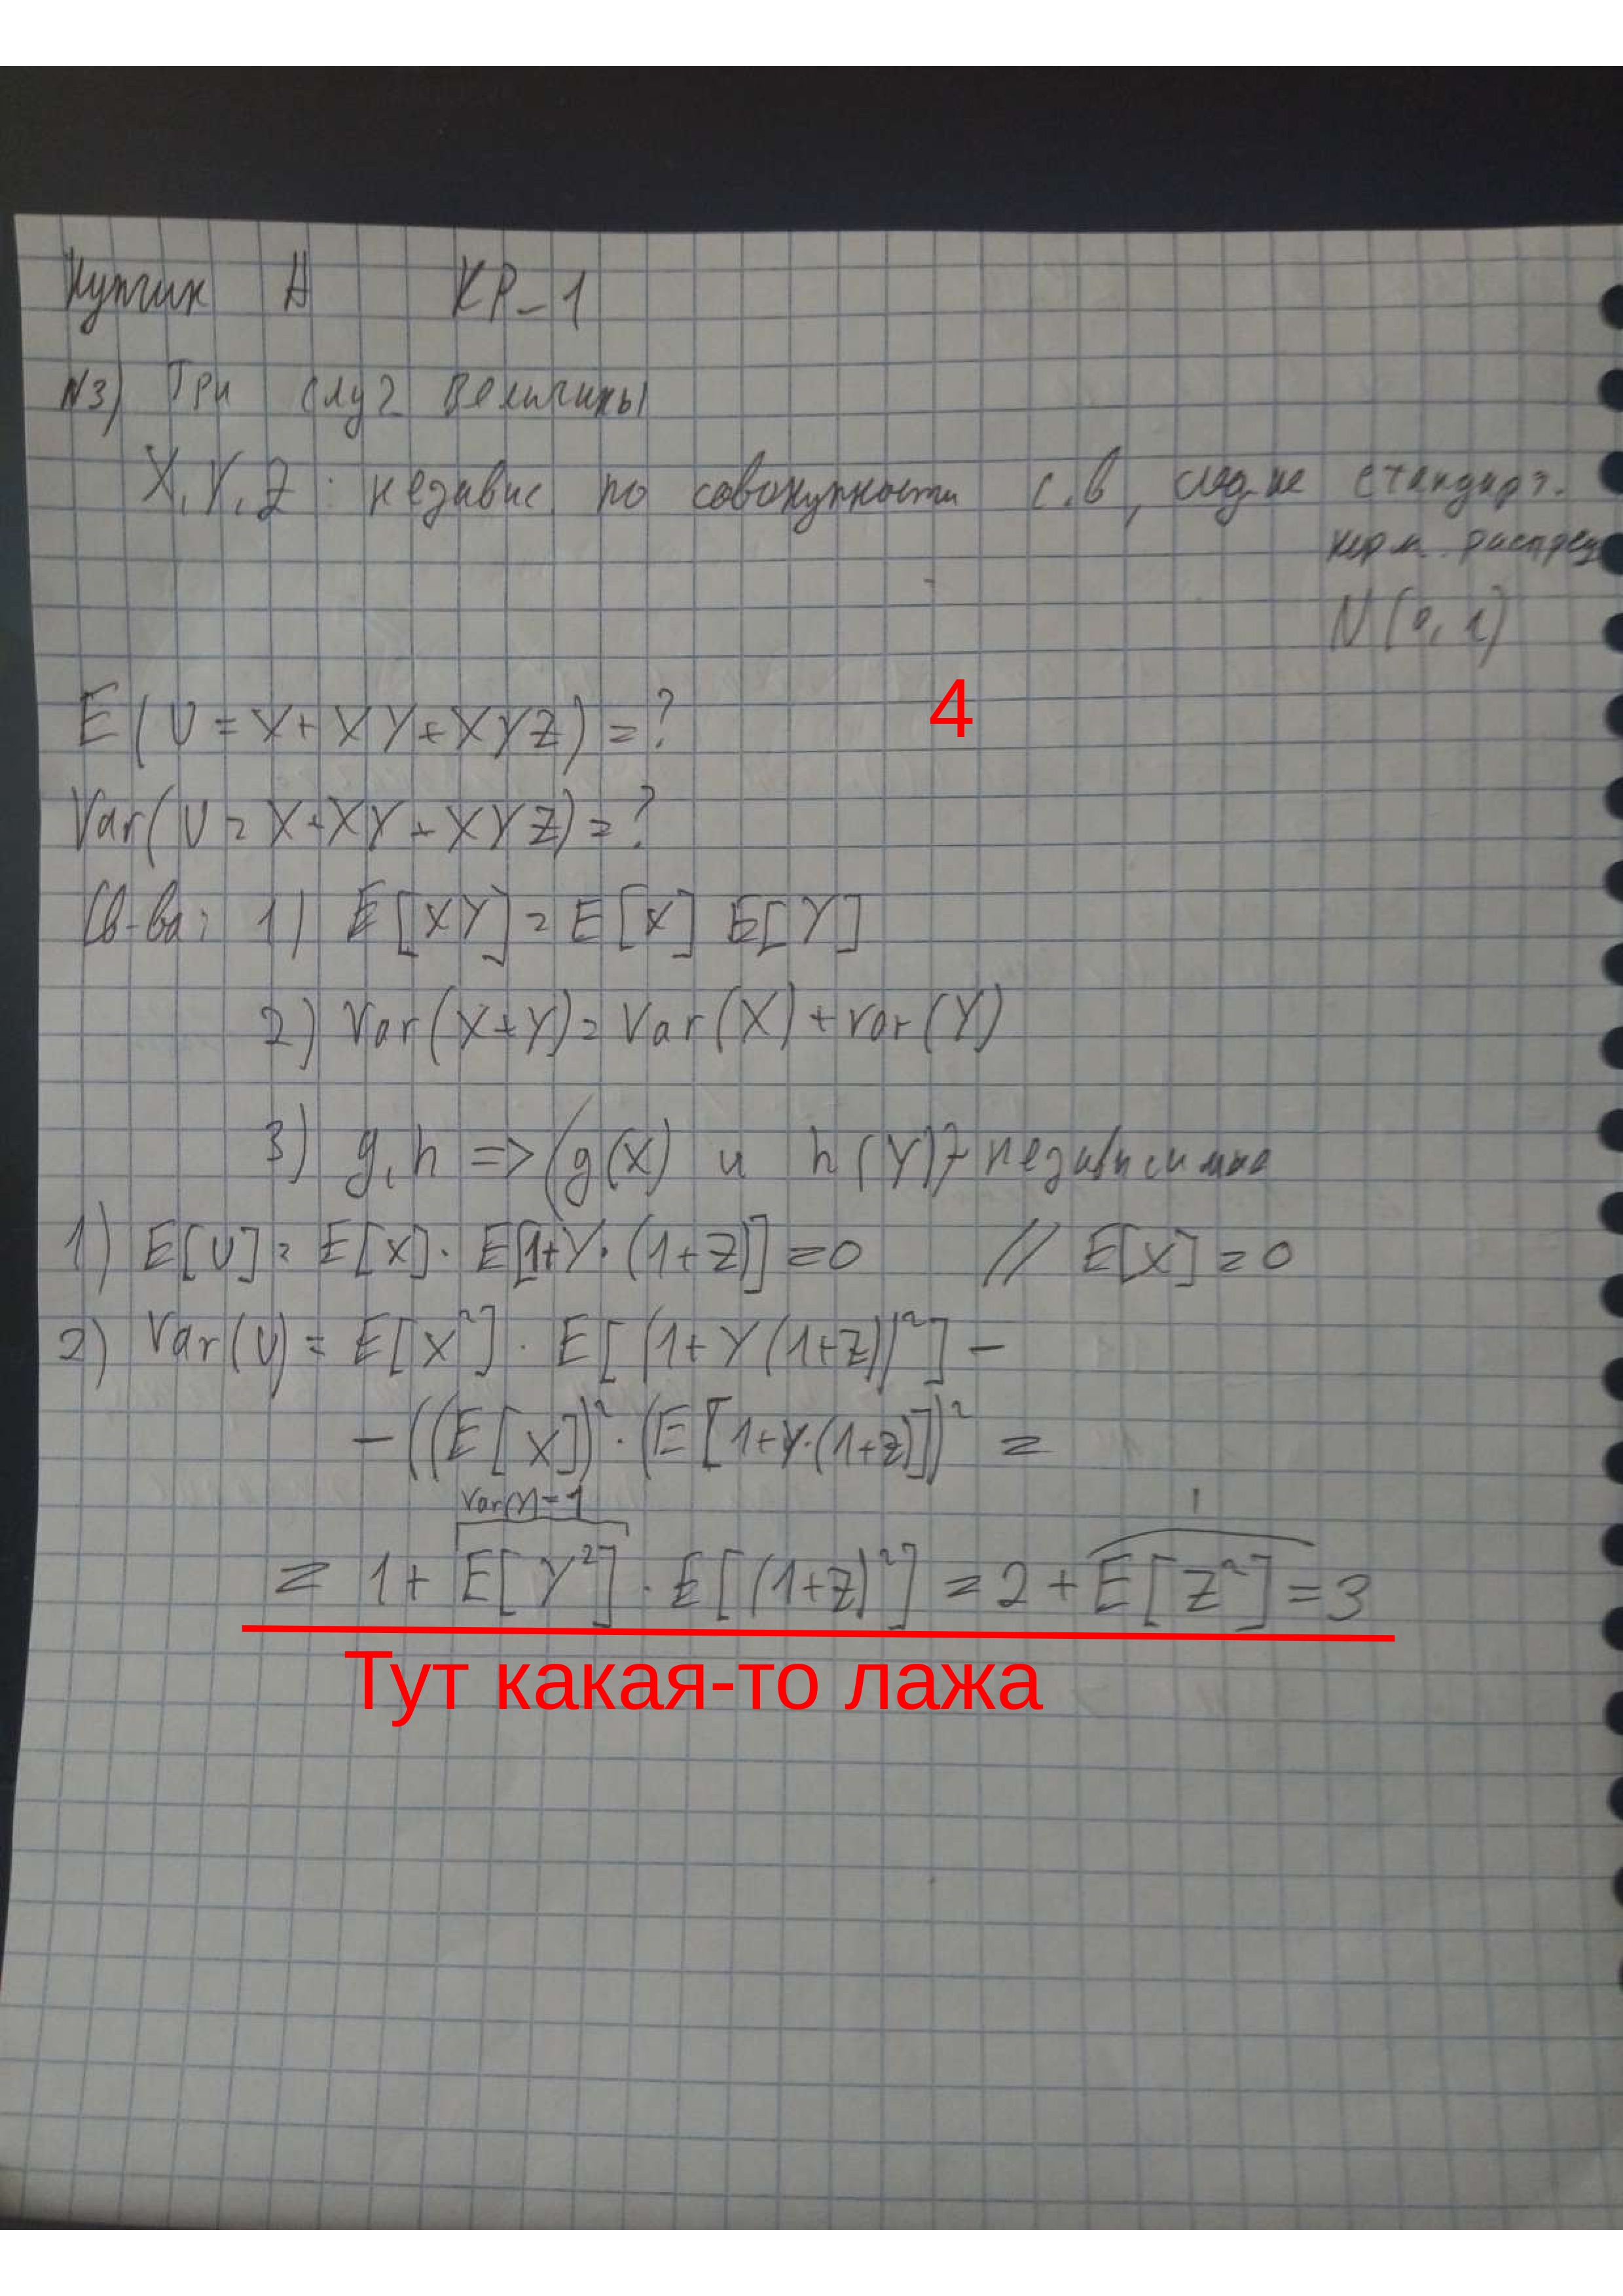 Купчик А КР-1
N3) Три случ величины
X, Y, Z : независ по совокупности с.в, след-ие стандарт.
норм. распред
N(0, 1)
E(U = X + XY + XYZ) = ?
4
Var(U = X + XY + XYZ) = ?
Св-ва: 1) E[XY] = E[X] E[Y]
2) Var(X+Y) = Var(X) + Var(Y)
3) g, h => (g(X) и h(Y)) независимые
1) E[U] = E[X] · E[1+Y·(1+Z)] = 0 // E[X] = 0
2) Var(U) = E[X²] · E[(1+Y(1+Z))²] -
- ((E[X])² · (E[1+Y·(1+Z)])² =
Var(Y)=1 1
= 1 + E[Y²] · E[(1+Z)²] = 2 + E[Z²] = 3
Тут какая-то лажа